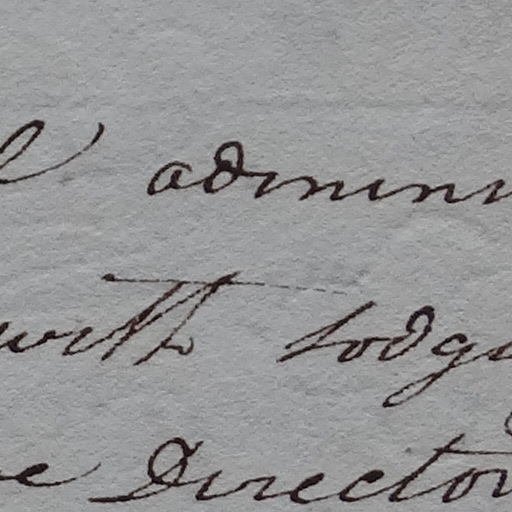 admini
with lodge
Director